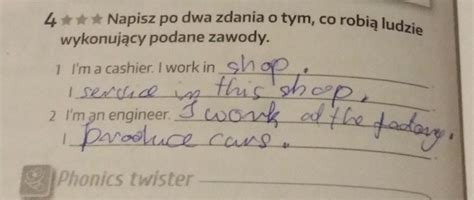 4 ★★★ Napisz po dwa zdania o tym, co robią ludzie
wykonujący podane zawody.
1 I'm a cashier. I work in shop.
I service in this shop.
2 I'm an engineer. I work at the factory.
I produce cars.
Phonics twister